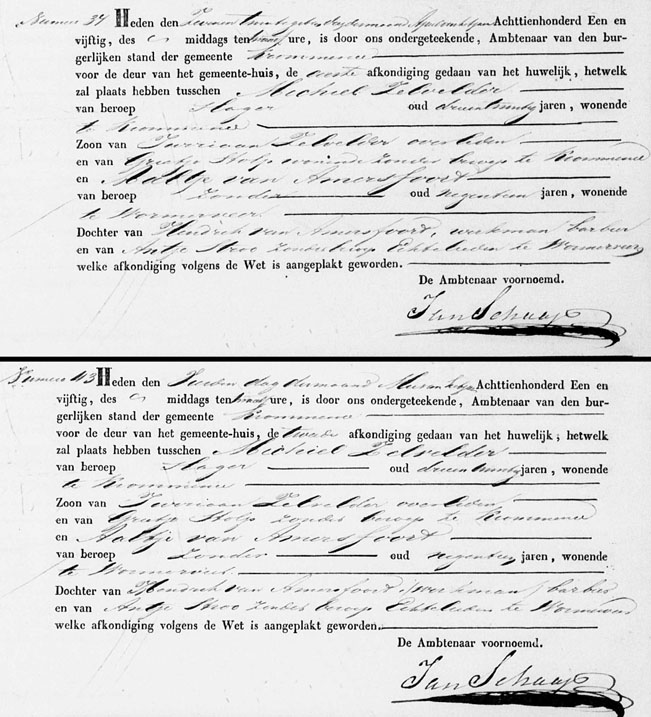 Numero 34 Heden den Zevenentwintigsten dag der maand April Achttienhonderd Een en
vijftig, des middags ten twaalf ure, is door ons ondergeteekende, Ambtenaar van den bur-
gerlijken stand der gemeente Krommenie
voor de deur van het gemeente-huis, de eerste afkondiging gedaan van het huwelijk, hetwelk
zal plaats hebben tusschen Michiel Zelvelder
van beroep Slager oud drieentwintig jaren, wonende
te Krommenie
Zoon van Jurriaan Zelvelder overleden
en van Grietje Stolp wonende zonder beroep te Krommenie
en Aaltje van Amersfoort
van beroep Zonder oud negentien jaren, wonende
te Wormerveer
Dochter van Hendrik van Amersfoort, werkman / barbier
en van Antje Stroo zonder beroep Echtelieden te Wormerveer
welke afkondiging volgens de Wet is aangeplakt geworden.
De Ambtenaar voornoemd.
Jan Schaap
Numero 43 Heden den dag der maand Mei Achttienhonderd Een en
vijftig, des middags ten twaalf ure, is door ons ondergeteekende, Ambtenaar van den bur-
gerlijken stand der gemeente Krommenie
voor de deur van het gemeente-huis, de tweede afkondiging gedaan van het huwelijk, hetwelk
zal plaats hebben tusschen Michiel Zelvelder
van beroep Slager oud drieentwintig jaren, wonende
te Krommenie
Zoon van Jurriaan Zelvelder overleden
en van Grietje Stolp zonder beroep te Krommenie
en Aaltje van Amersfoort
van beroep Zonder oud negentien jaren, wonende
te Wormerveer
Dochter van Hendrik van Amersfoort / werkman / barbier
en van Antje Stroo zonder beroep Echtelieden te Wormerveer
welke afkondiging volgens de Wet is aangeplakt geworden.
De Ambtenaar voornoemd.
Jan Schaap